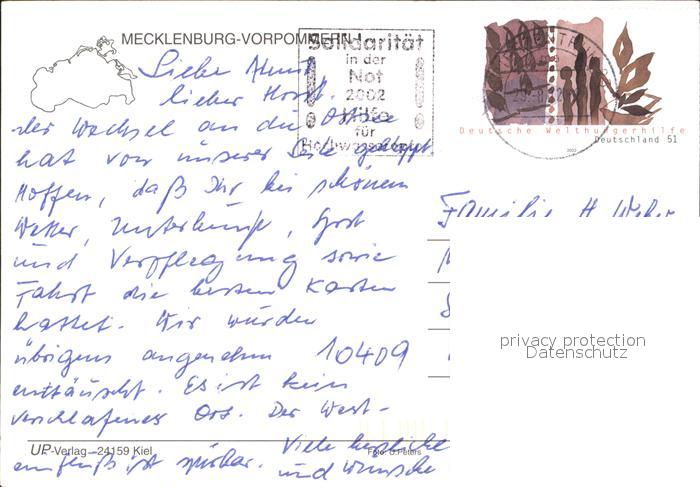 MECKLENBURG-VORPOMMERN
Solidarität
in der
Not
2002
Hilfe
für
Hochwasseropfer
Deutsche Welthungerhilfe
Deutschland 51
2002
Liebe
lieber Horst.
der Wechsel an die Ostsee
hat von unserer Seite geklappt
Hoffen, daß Ihr bei schönem
Wetter, Unterkunft,
und Verpflegung sowie
Fahrt die besten Karten
hattet. Wir wurden
übrigens angenehm 10409
enttäuscht. Es ist kein
verschlafener Ort. Der West-
einfluß ist spürbar. Viele herzliche
und Wünsche
Familie H Weber
privacy protection
Datenschutz
UP-Verlag – 24159 Kiel
Foto: D. Peters